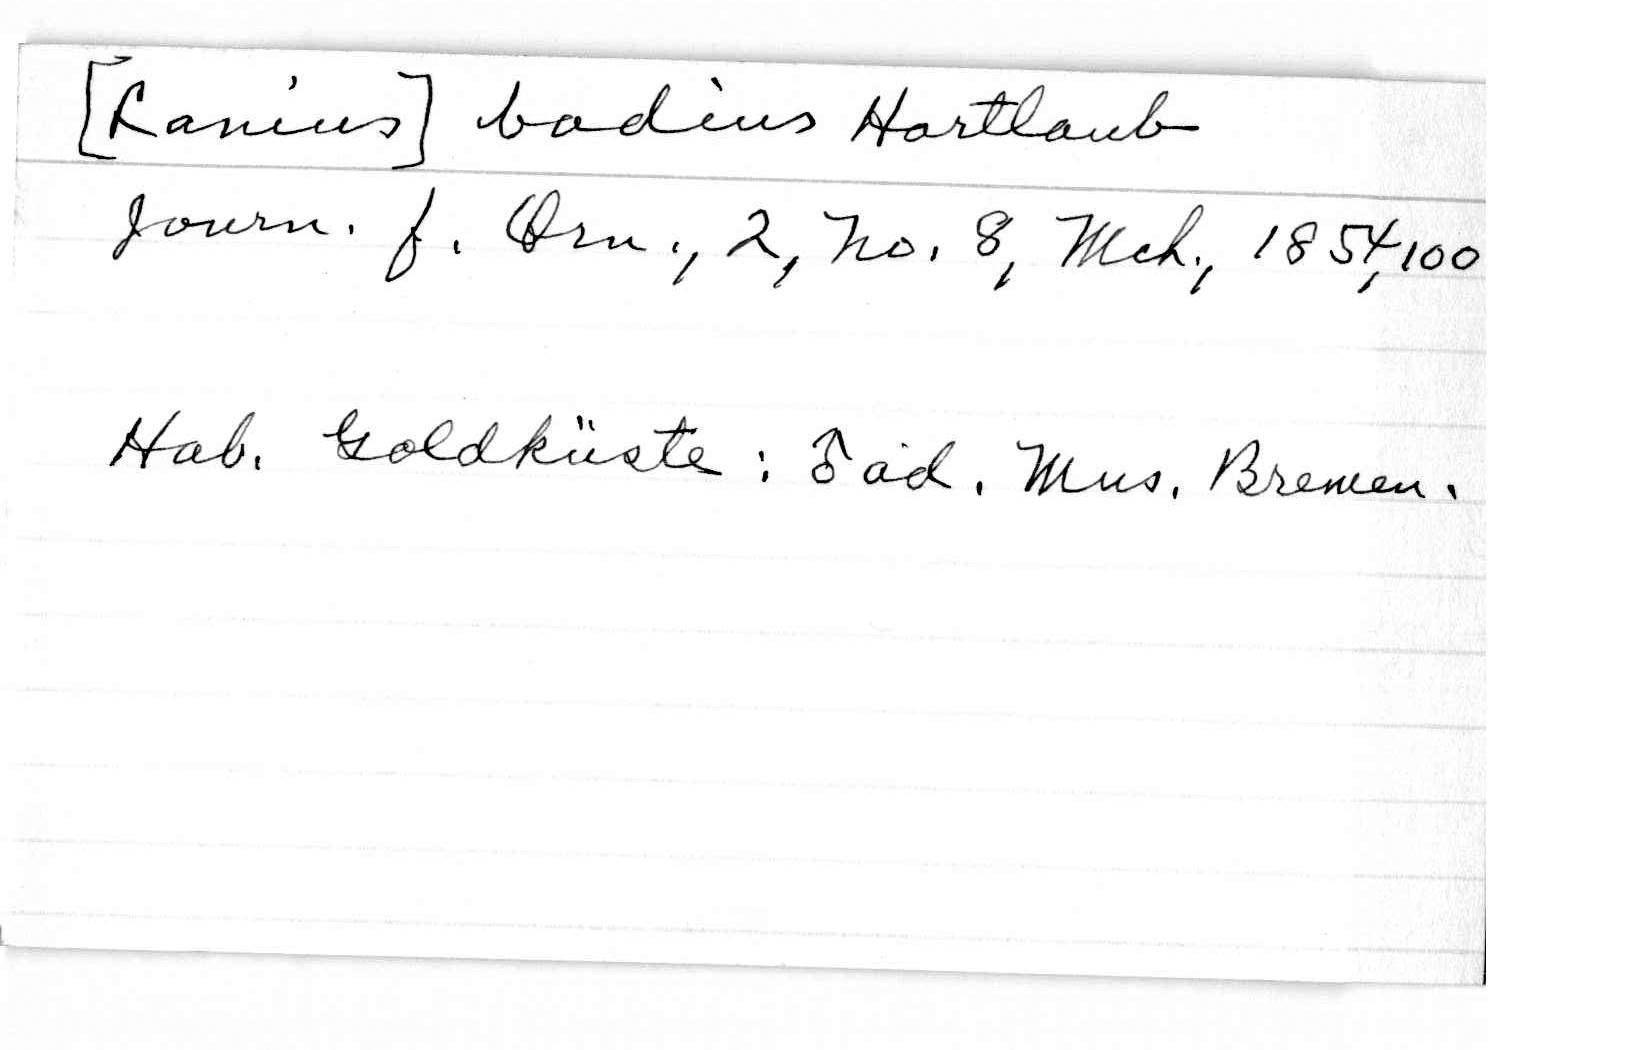 [Lanius] badius Hartlaub
Journ. f. Orn., 2, No. 8, Mch., 1854, 100
Hab. Goldküste : ♂ ad. Mus. Bremen.